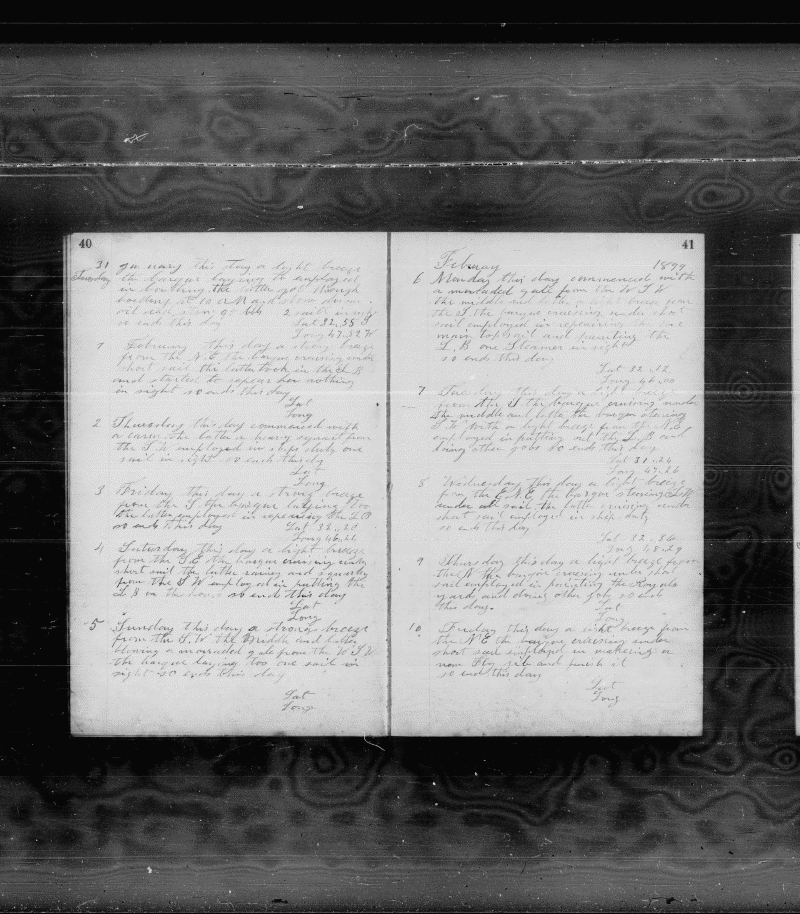 40
31 January this day a light breeze
Tuesday the barque laying to employed
in the latter got through
at 10 A M
2 sail in sight
so ends this day Lat 32,55 S
Long 47.32 W
1 February this day a strong breeze
from the N.E. the barque cruising under
short sail the latter took in the L B
and started to repair her nothing
in sight so ends this day
Lat
Long
2 Thursday this day commenced with
a the latter a heavy squall from
the S.W. employed in ships duty one
sail in sight so ends this day
Lat
Long
3 Friday this day a strong breeze
from the S. the barque laying too
the latter employed in repairing the L B
so ends this day Lat 32..20
Long 46.22
4 Saturday this day a light breeze
from the S.E. the barque cruising under
short sail the latter rainey and squally
from the S.W employed in putting the
L.B on the so ends this day
Lat
Long
5 Sunday this day a strong breeze
from the S.W the Middle and latter
blowing a gale from the W S W
the barque laying too one sail in
sight so ends this day
Lat
Long
41
Februay 1899
6 Monday this day commenced with
a gale from the W S W
the middle and latter a light breeze from
the S. the barque cruising under short
sail employed in repairing the one
main topsail and painting the
L.B one Steamer in sight
so ends this day
Lat 32..12
Long 46,00
7 Tuesday this day a light breeze
from the S the barque cruising under
the middle and latter the barque steering
with a light breeze from the N.E.
employed in putting out the L.B and
doing other jobs so ends this day
Lat 31..24
Long 47.26
8 Wednesday this day a light breeze
from the E.N.E the barque steering S.W
under all sail the latter cruising under
short sail employed in ship duty
so ends this day
Lat 32..
Long 48.29
9 Thursday this day a light breeze from
the N. the barque cruising under short
sail employed in painting the Royals
yard and doing other jobs so ends
this day. Lat
Long
10 Friday this day a light breeze from
the N E the barque cruising under
short sail employed in makeing a
new Fly jib and finish it
so ends this day
Lat
Long